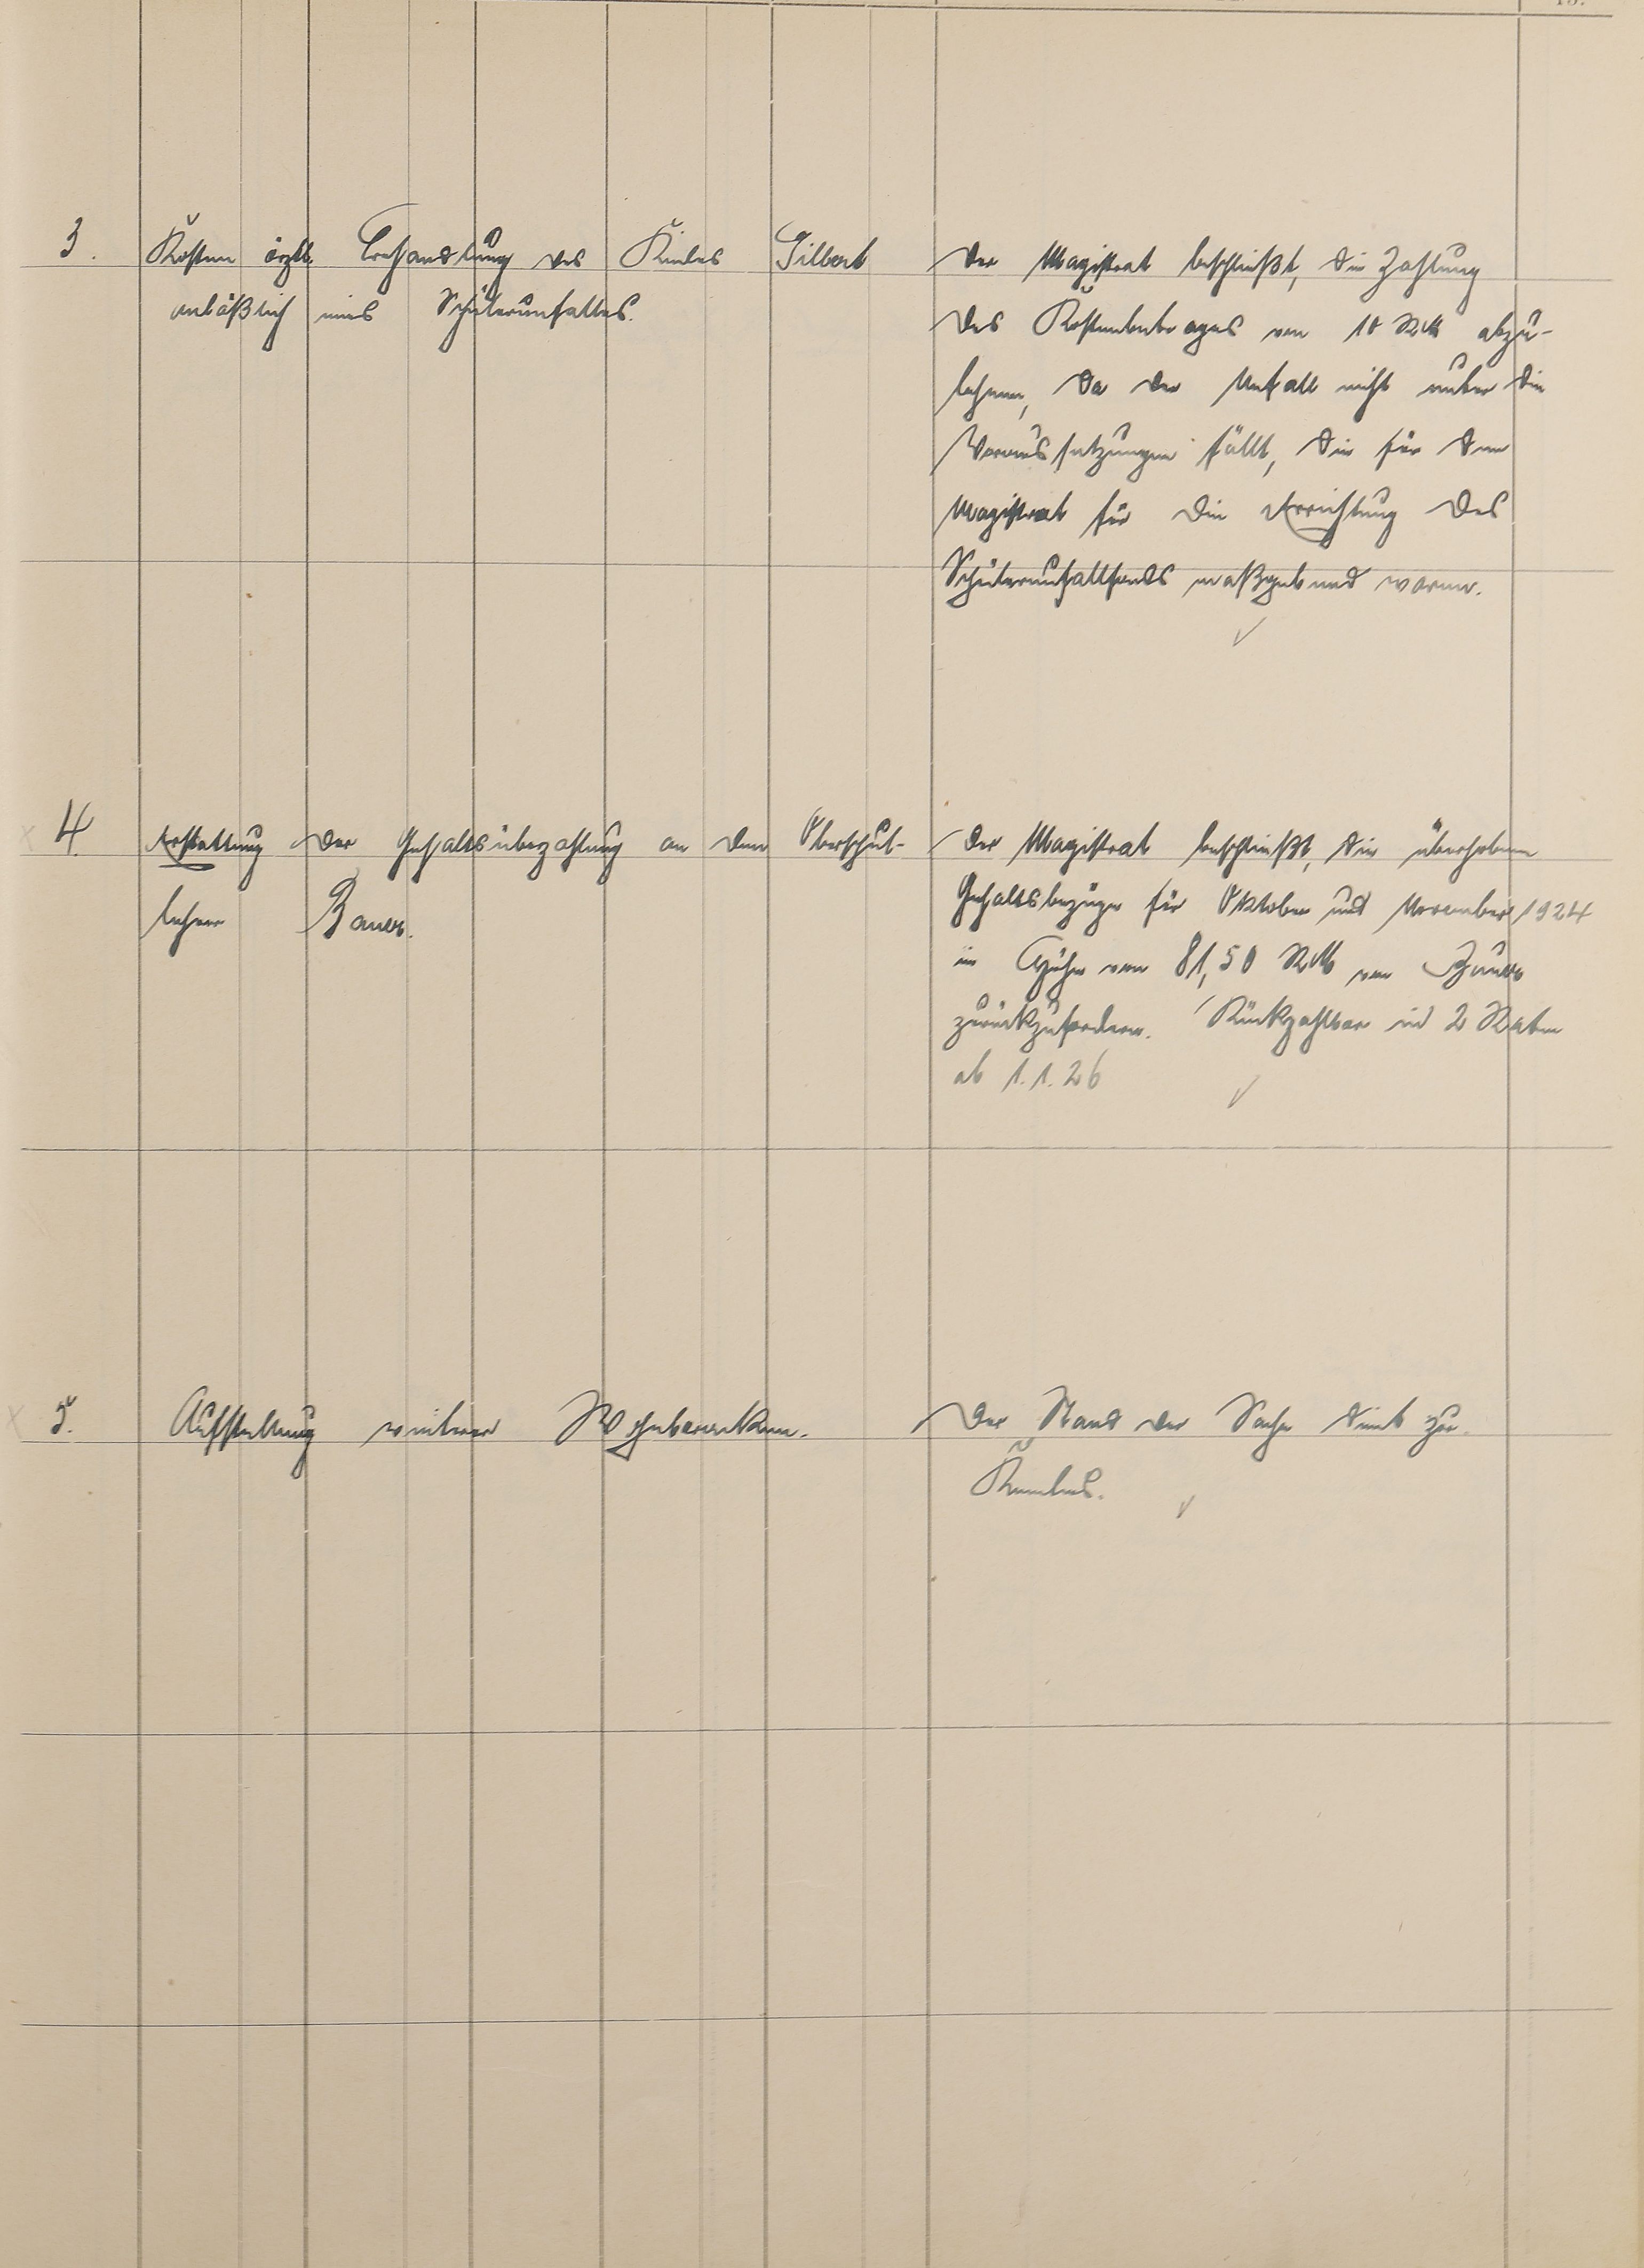 3. Kosten ärztl. Behandlung des Kindes Gilbert
anläßlich eines Schülerunfalles.
Der Magistrat beschließt, die Zahlung
des Kostenbetrages von 10 RM abzu-
lehnen, da der Unfall nicht unter die
Voraussetzungen fällt, die für den
Magistrat für die Errichtung des
Schülerunfallfonds maßgebend waren.
4. Erstattung der Gehaltsüberzahlung an den Oberschul-
lehrer Bauer.
Der Magistrat beschließt, die überhobenen
Gehaltsbezüge für Oktober und November 1924
in Höhe von 81,50 RM von Bauer
zurückzufordern. Rückzahlbar in 2 Raten
ab 1.1.26
5. Aufstellung weiterer Wohnbaracken.
Der Stand der Sache dient zur
Kenntnis.